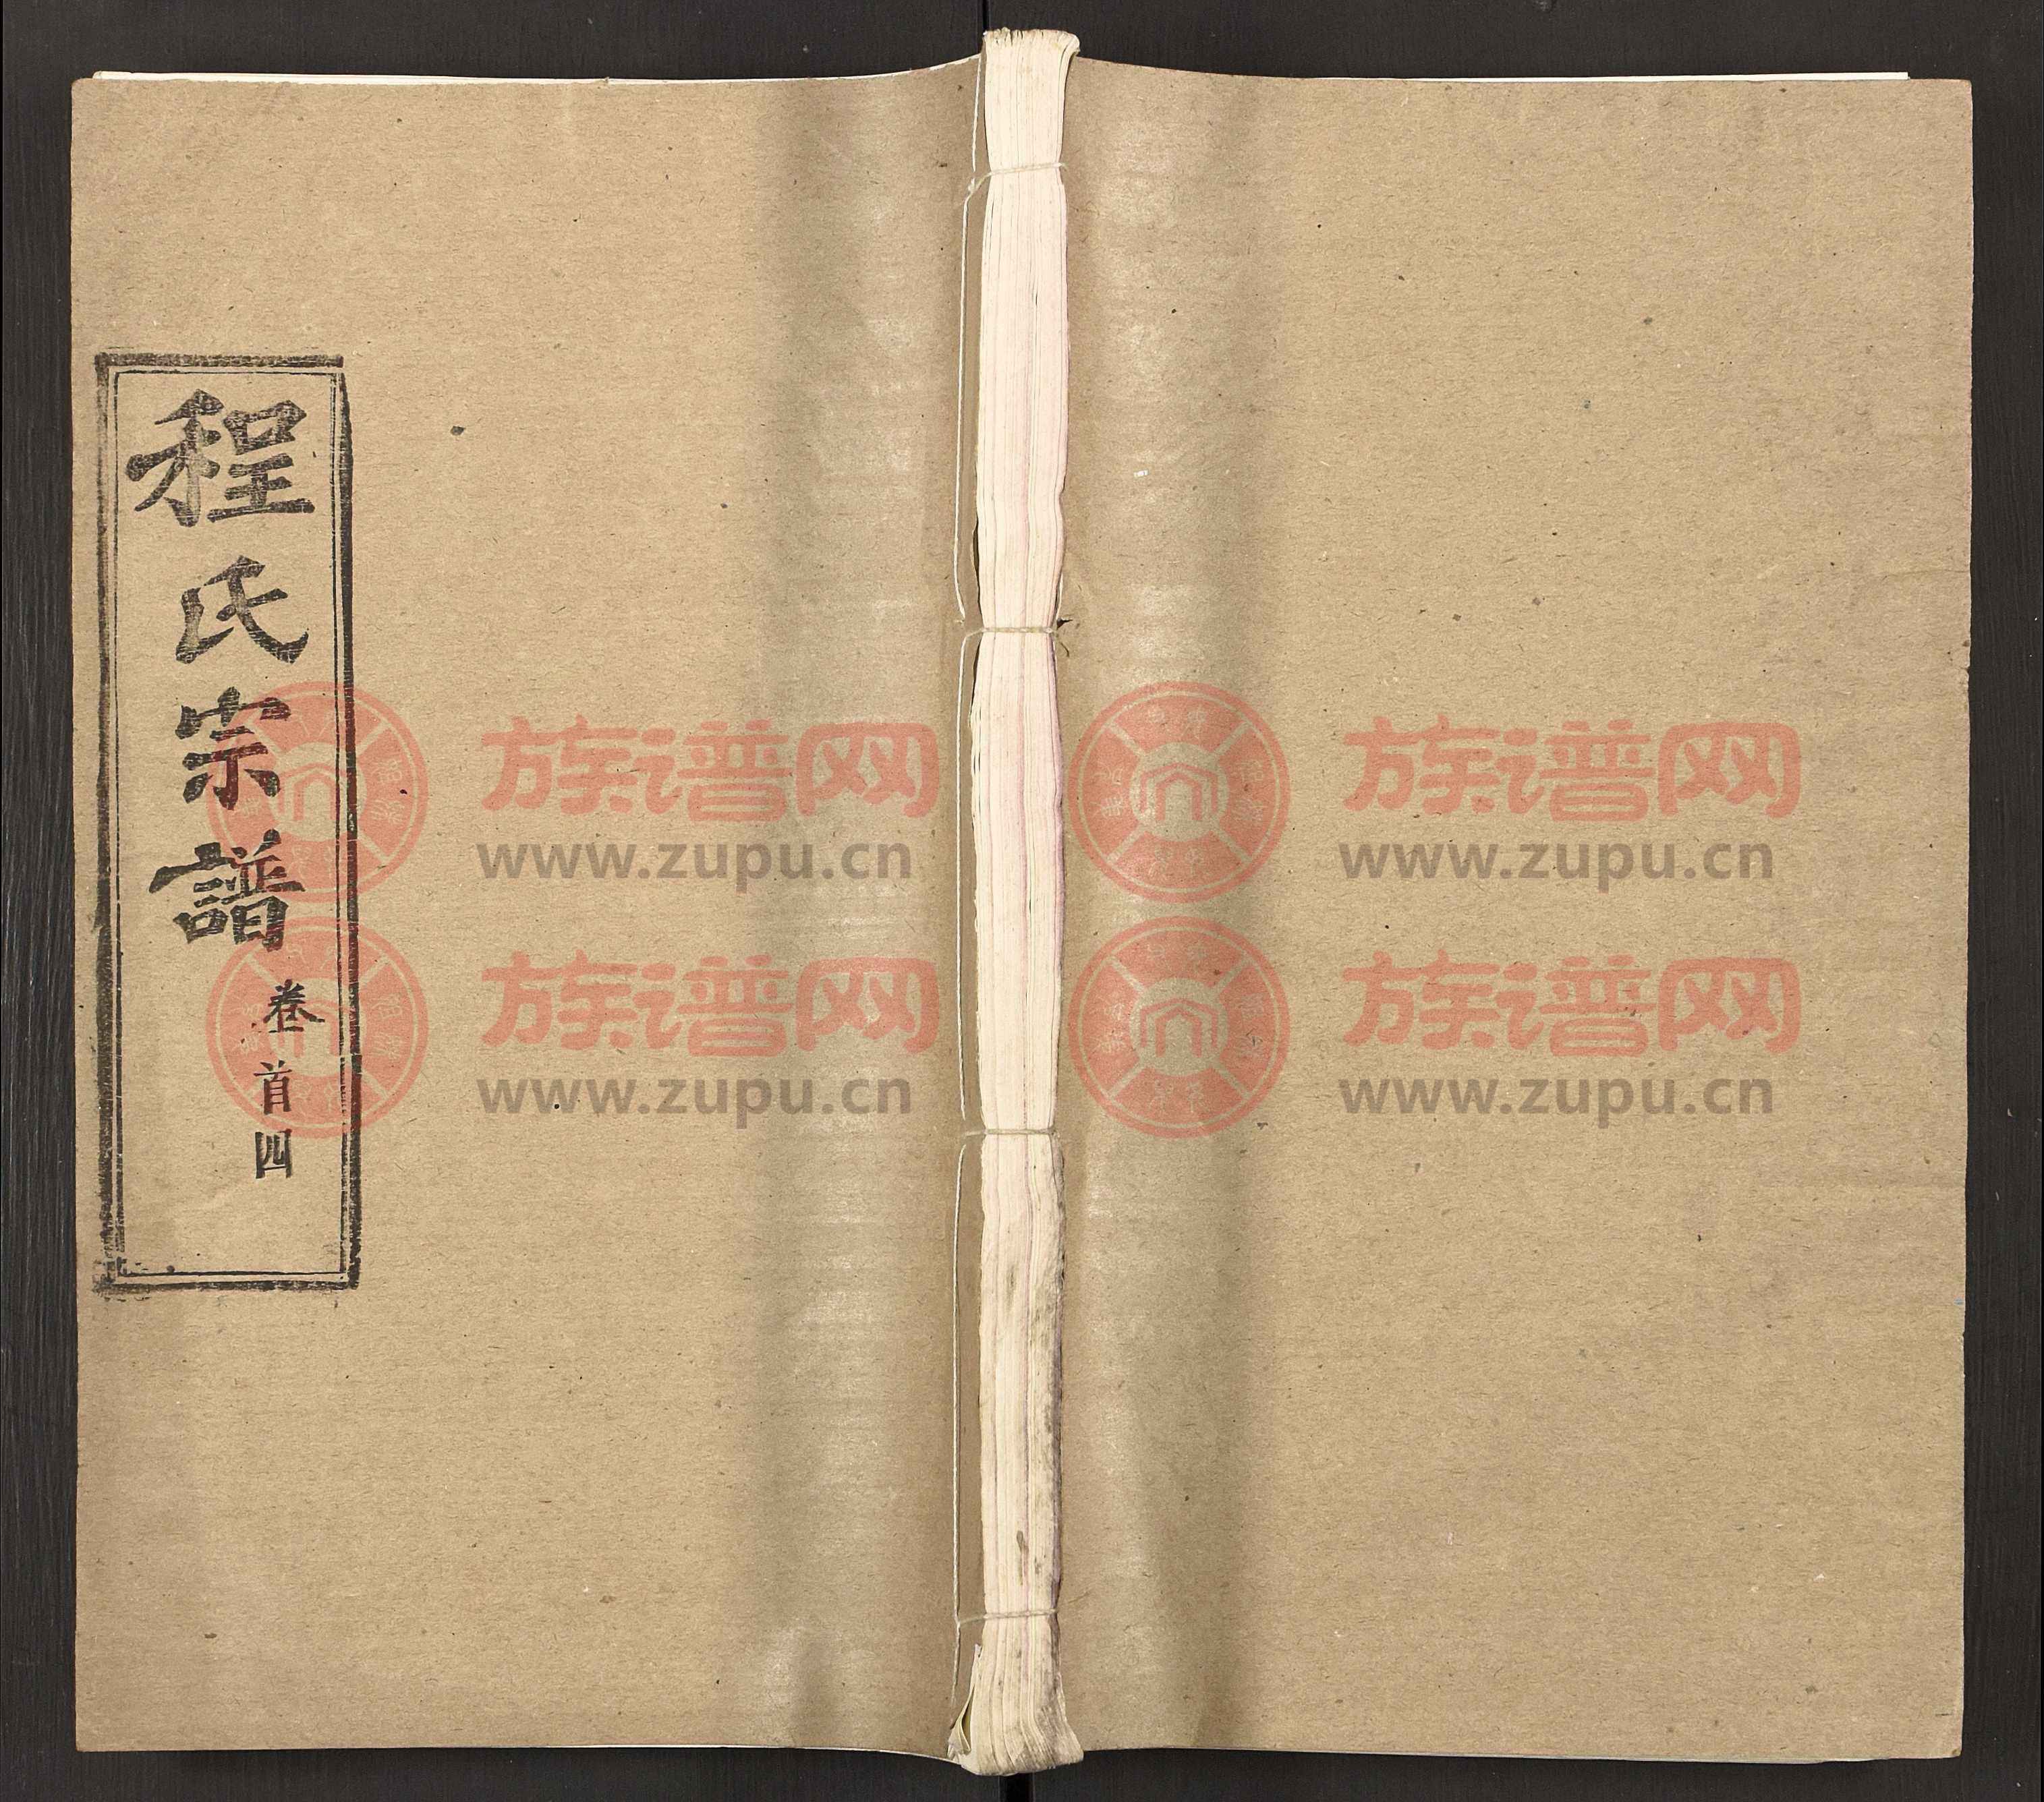 程氏宗譜
卷首四
族谱网
www.zupu.cn
族谱网
www.zupu.cn
族谱网
www.zupu.cn
族谱网
www.zupu.cn